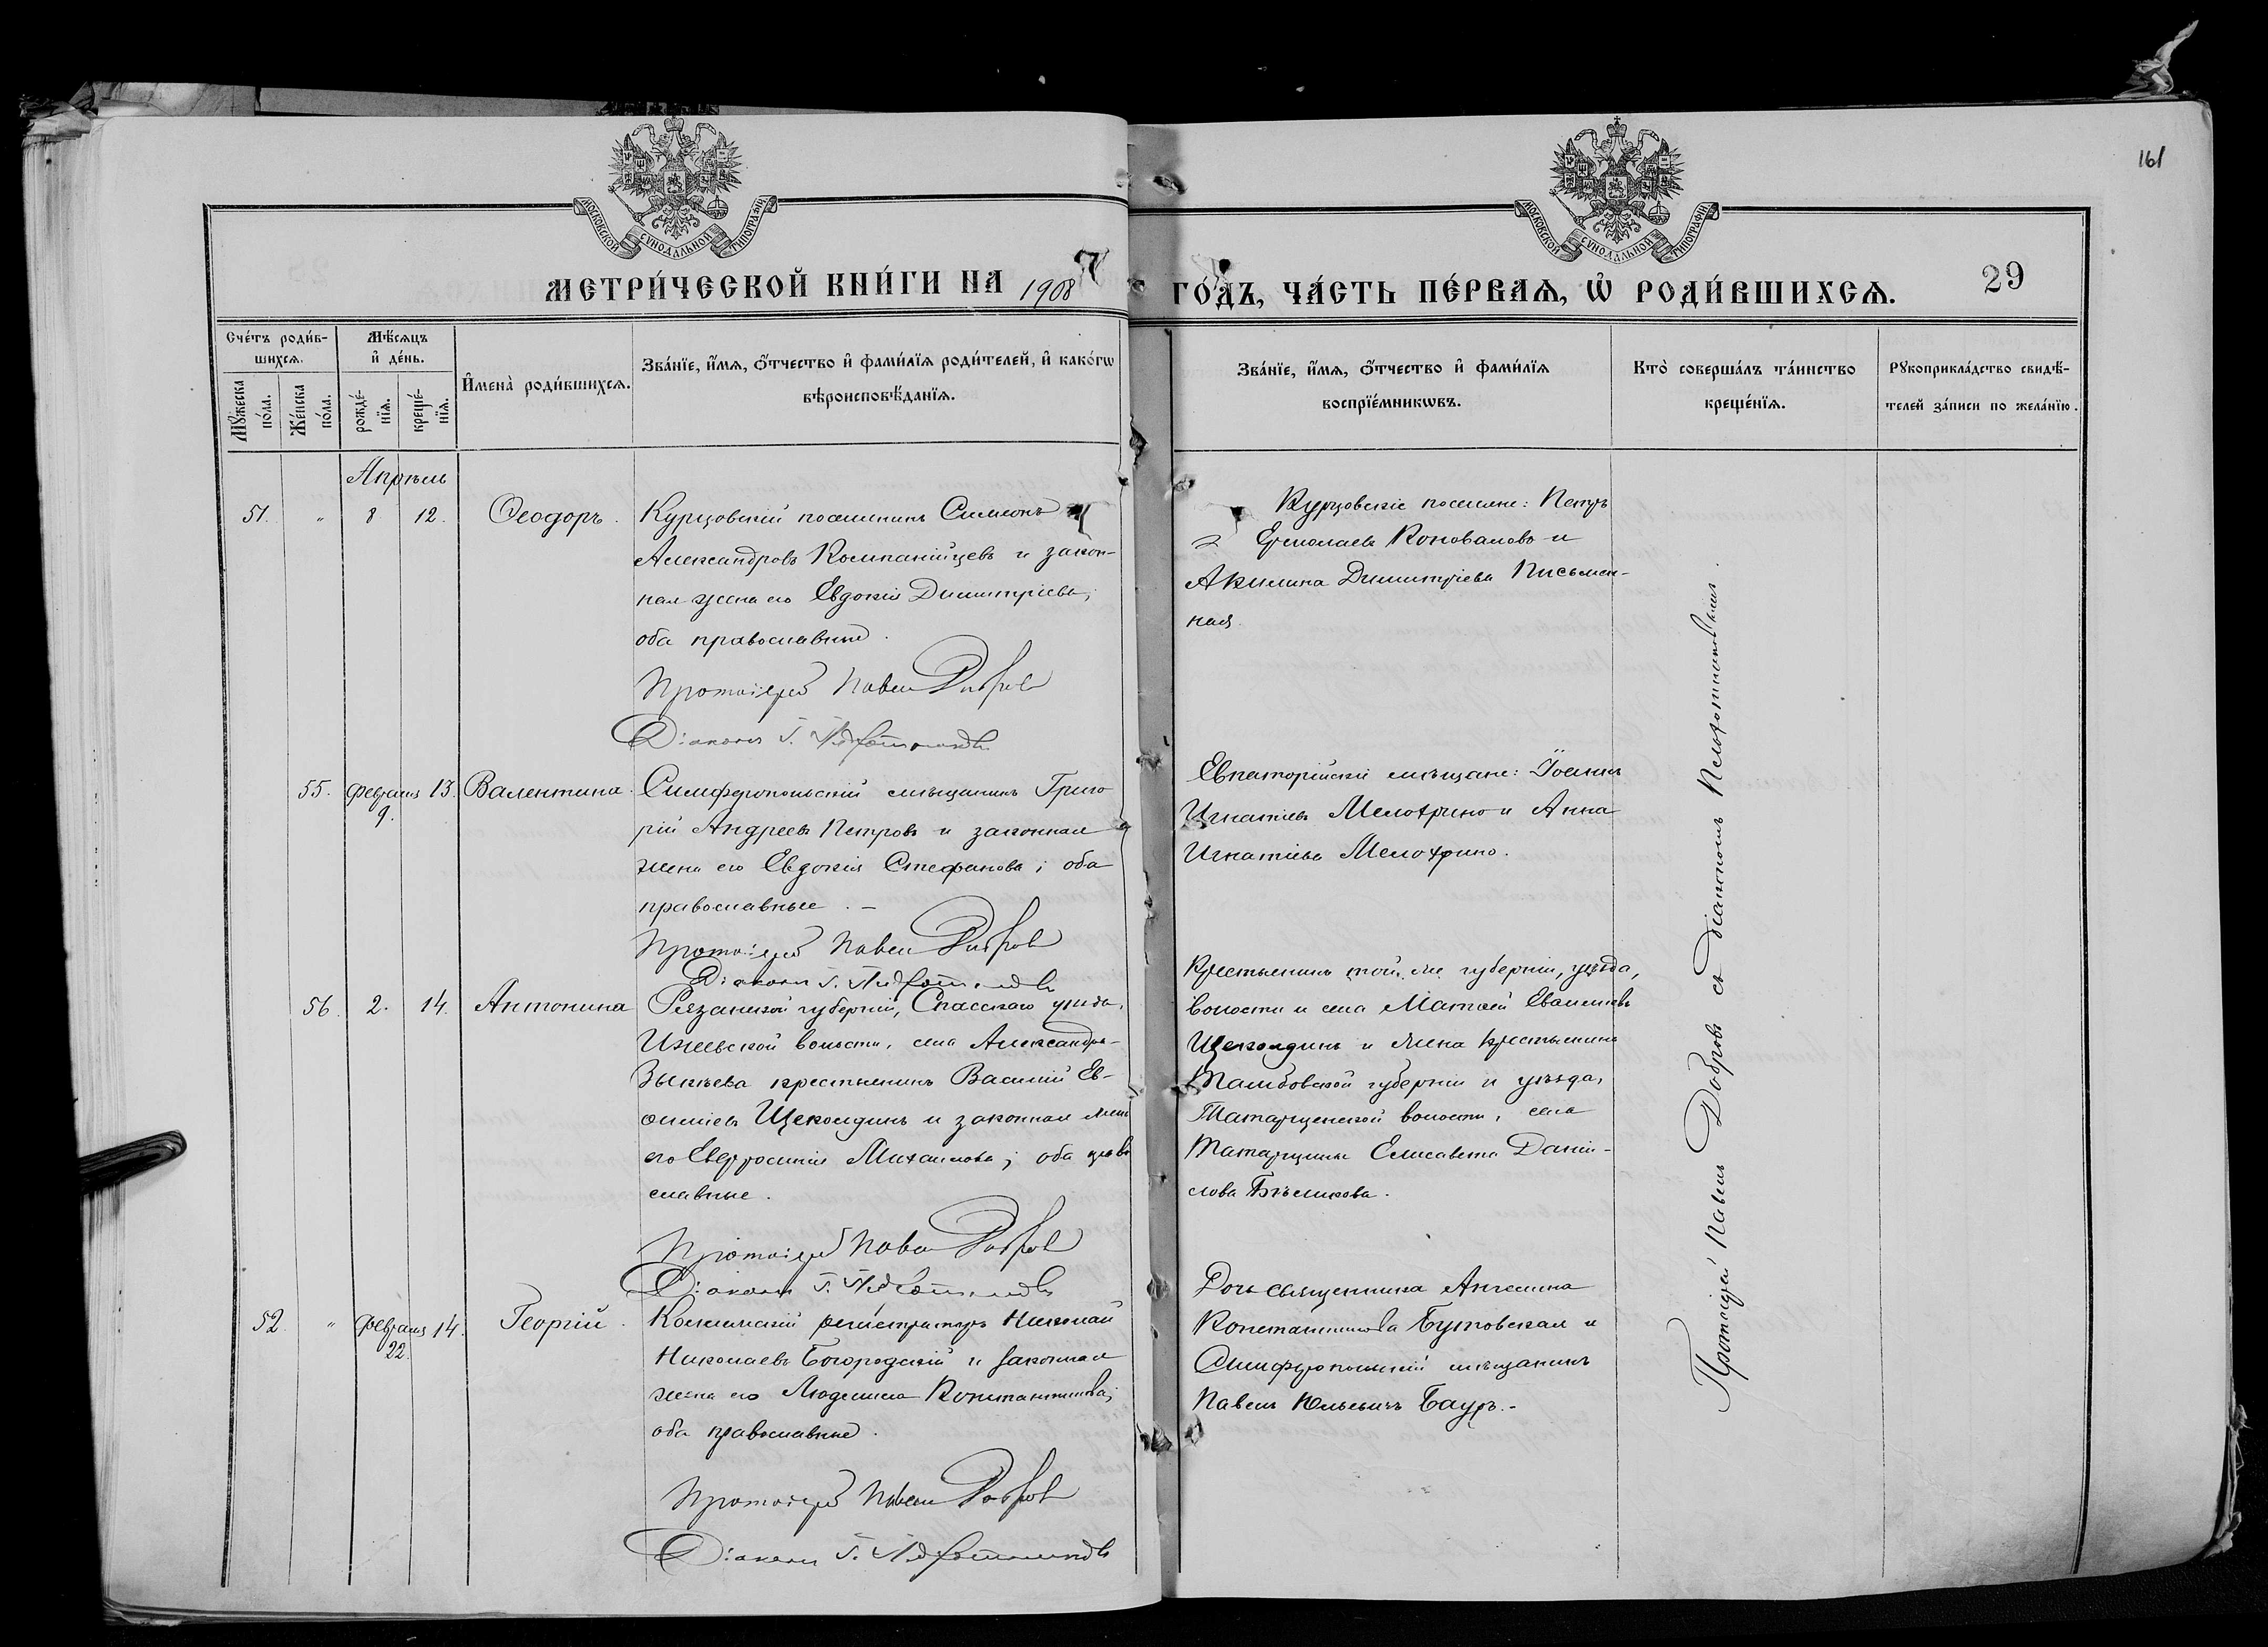 161
МОСКОВСКОЙ СУНОДАЛЬНОЙ ТИПОГРАФІИ
МОСКОВСКОЙ СУНОДАЛЬНОЙ ТИПОГРАФІИ
МЕТРИ́ЧЕСКОЙ КНИ́ГИ НА 1908
ГО́ДЪ, ЧА́СТЬ ПЕ́РВАѦ, Ѡ҆ РОДИ́ВШИХСѦ.
29
Сче́тъ роди́в-
шихсѧ.
Мѣ́сѧцъ
и҆ де́нь.
Мꙋ́жеска
по́ла.
Же́нска
по́ла.
рожде́-
нїѧ.
креще́-
нїѧ.
И҆мена̀ роди́вшихсѧ.
Зва́нїе, и҆́мѧ, ѻ҆́тчество и҆ фами́лїѧ роди́телей, и҆ како́гѡ
вѣроисповѣ́данїѧ.
Зва́нїе, и҆́мѧ, ѻ҆́тчество и҆ фами́лїѧ
воспрїе́мникѡвъ.
Кто̀ соверша́лъ та́инство
креще́нїѧ.
Рꙋкоприкла́дство свидѣ́-
телей за́писи по жела́нїю.
Апрѣль
51. " 8 12. Ѳеодоръ.
Курцовскій поселянинъ Симеонъ
Александровъ Компанійцевъ и закон-
ная жена его Евдокія Димитріева;
оба православные.
Протоіерей Павелъ Добровъ
Діаконъ
Курцовскіе поселяне: Петръ
Ермолаевъ Коноваловъ и
Акилина Димитріева Письмен-
ная.
55. Февраля 9. 13. Валентина.
Симферопольскій мѣщанинъ Григо
рій Андреевъ Петровъ и законная
жена его Евдокія Стефанова; оба
православные. —
Протоіерей Павелъ Добровъ
Діаконъ
Евпаторійскіе мѣщане: Іоаннъ
Игнатіевъ Мелахрино и Анна
Игнатіева Мелахрино.
56. 2. 14. Антонина
Рязанской губерніи, Спасскаго уѣзда,
Ижевской волости, села Александро-
крестьянинъ Василій Ев-
Щеколдинъ и законная жена
его Евфросинія Михаилова; оба право
славные.
Протоіерей Павелъ Добровъ
Діаконъ
Крестьянинъ той же губерніи, уѣзда,
волости и села Матѳей
Щеколдинъ и жена крестьянина
Тамбовской губерніи и уѣзда,
Татарщенской волости, села
Татарщины Елисавета Даніи-
лова Бѣликова.
52. " Февраля 22. 14. Георгій.
Коллежскій регистраторъ Николай
Николаевъ Богородскій и законная
жена его Людмила Константинова;
оба православные.
Протоіерей Павелъ Добровъ
Діаконъ
Дочь священника Ангелина
Константинова Бутовская и
Симферопольскій мѣщанинъ
Павелъ Юльевичъ Бауръ.-
Протоіерей Павелъ Добровъ съ діакономъ